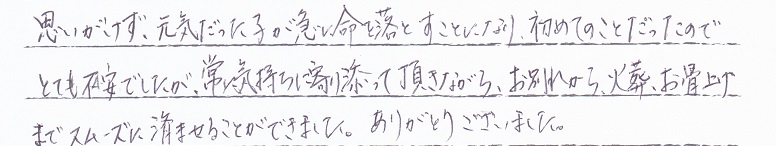 思いがけず、元気だった子が急に命を落とすことになり、初めてのことだったので
とても不安でしたが、常に気持ちに寄り添って頂きながら、お別れから、火葬、お骨上げ
までスムーズに済ませることができました。ありがとうございました。